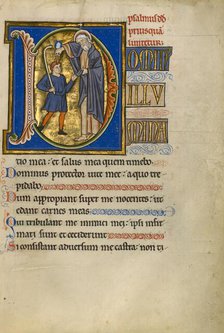 psalmus dd
priusquā
liniretur
DOMIN
ILLV
MINA
tio mea: et salus mea quem timebo
Dominus protector uite mee: a quo tre
pidabo
Dum appropiant super me nocentes: ut
edant carnes meas
Qui tribulant me inimici mei: ipsi infir
mati sunt et ceciderunt
Si consistant aduersum me castra: non ti